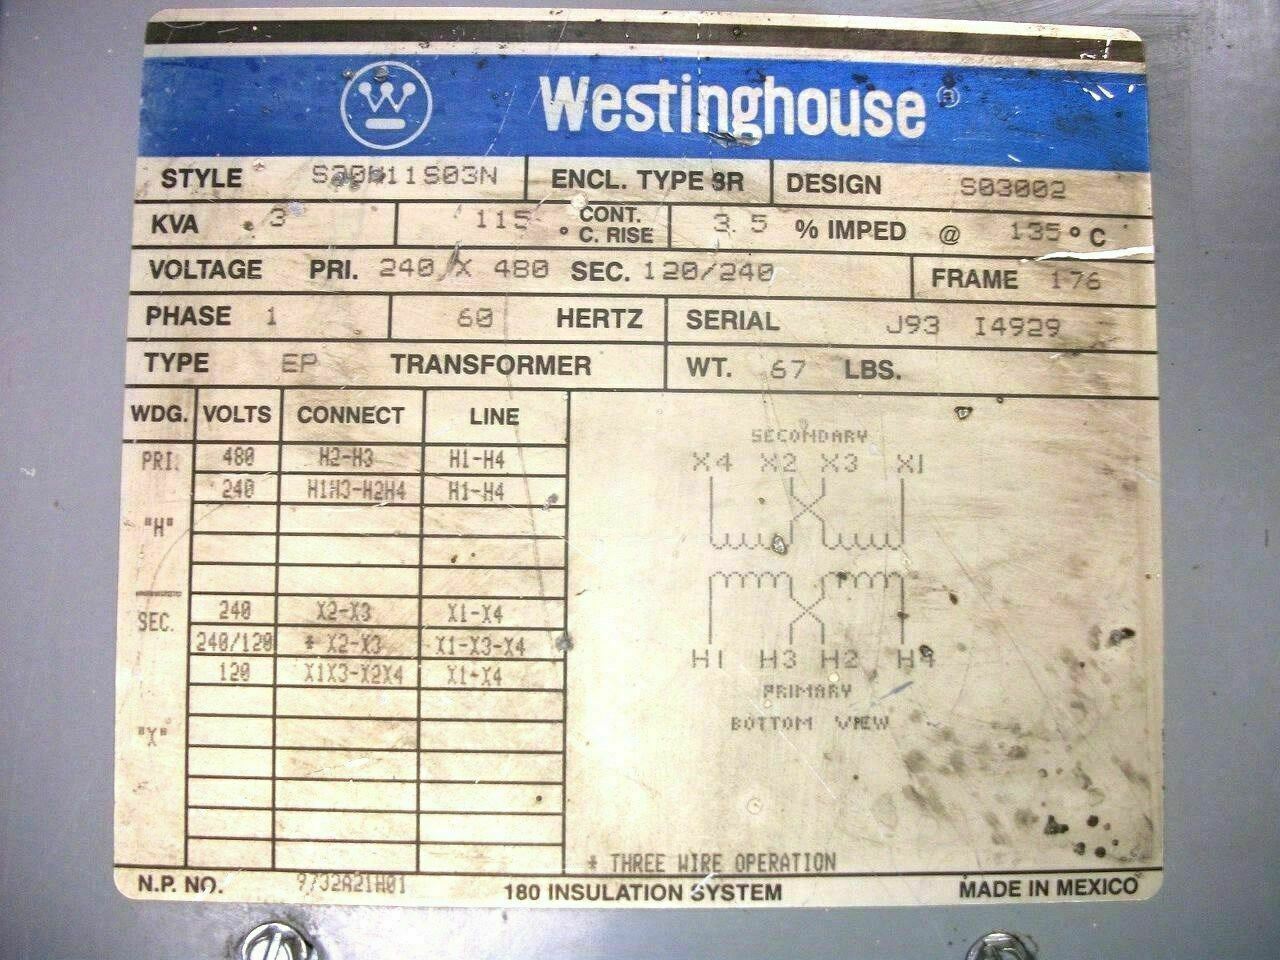 Westinghouse ®
STYLE ENCL. TYPE 3R DESIGN S03002
KVA 3 115 CONT. ° C. RISE 3.5 % IMPED @ 135 ° C
VOLTAGE PRI. 240 X 480 SEC. 120/240 FRAME 176
PHASE 1 60 HERTZ SERIAL J93 I4929
TYPE EP TRANSFORMER WT. 67 LBS.
WDG. VOLTS CONNECT LINE
PRI. 480 H2-H3 H1-H4
240 H1H3-H2H4 H1-H4
"H"
SEC. 240 X2-X3 X1-X4
240/120 * X2-X3 X1-X3-X4
120 X1X3-X2X4 X1-X4
"X"
SECONDARY
X4 X2 X3 X1
H1 H3 H2 H4
PRIMARY
BOTTOM VIEW
* THREE WIRE OPERATION
N.P. NO. 9732A21H01 180 INSULATION SYSTEM MADE IN MEXICO